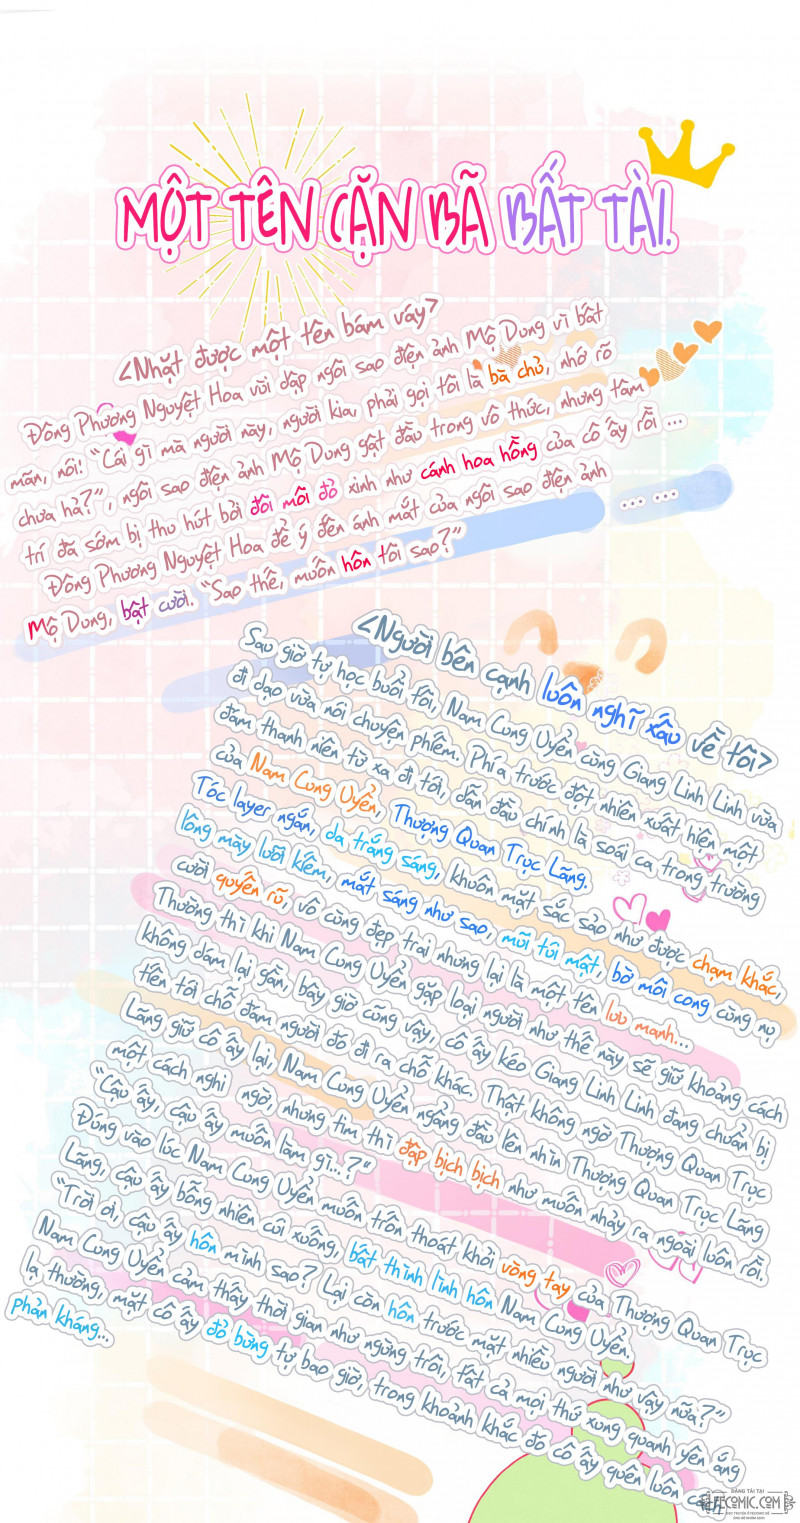 MỘT TÊN CẶN BÃ BẤT TÀI.
<Nhặt được một tên bám váy>
Đông Phương Nguyệt Hoa vùi dập ngôi sao điện ảnh Mộ Dung vì bất
mãn, nói: “Cái gì mà người này, người kia, phải gọi tôi là bà chủ, nhớ rõ
chưa hả?”, ngôi sao điện ảnh Mộ Dung gật đầu trong vô thức, nhưng tâm
trí đã sớm bị thu hút bởi đôi môi đỏ xinh như cánh hoa hồng của cô ấy rồi ...
Đông Phương Nguyệt Hoa để ý đến ánh mắt của ngôi sao điện ảnh ... ...
Mộ Dung, bật cười. “Sao thế, muốn hôn tôi sao?”
<Người bên cạnh luôn nghĩ xấu về tôi>
Sau giờ tự học buổi tối, Nam Cung Uyển cùng Giang Linh Linh vừa
đi dạo vừa nói chuyện phiếm. Phía trước đột nhiên xuất hiện một
đám thanh niên từ xa đi tới, dẫn đầu chính là soái ca trong trường
của Nam Cung Uyển, Thượng Quan Trục Lãng.
Tóc layer ngắn, da trắng sáng, khuôn mặt sắc sảo như được chạm khắc,
lông mày lưỡi kiếm, mắt sáng như sao, mũi túi mật, bờ môi cong cùng nụ
cười quyến rũ, vô cùng đẹp trai nhưng lại là một tên lưu manh...
Thường thì khi Nam Cung Uyển gặp loại người như thế này sẽ giữ khoảng cách
không dám lại gần, bây giờ cũng vậy, cô ấy kéo Giang Linh Linh đang chuẩn bị
tiến tới chỗ đám người đó đi ra chỗ khác. Thật không ngờ Thượng Quan Trục
Lãng giữ cô ấy lại, Nam Cung Uyển ngẩng đầu lên nhìn Thượng Quan Trục Lãng
một cách nghi ngờ, nhưng tim thì đập bịch bịch như muốn nhảy ra ngoài luôn rồi.
“Cậu ấy, cậu ấy muốn làm gì...?”
Đúng vào lúc Nam Cung Uyển muốn trốn thoát khỏi vòng tay của Thượng Quan Trục
Lãng, cậu ấy bỗng nhiên cúi xuống, bất thình lình hôn Nam Cung Uyển.
“Trời ơi, cậu ấy hôn mình sao? Lại còn hôn trước mặt nhiều người như vậy nữa?”
Nam Cung Uyển cảm thấy thời gian như ngừng trôi, tất cả mọi thứ xung quanh yên ắng
lạ thường, mặt cô ấy đỏ bừng tự bao giờ, trong khoảnh khắc đó cô ấy quên luôn cách
phản kháng...
ĐĂNG TẢI TẠI
LFECOMIC.COM